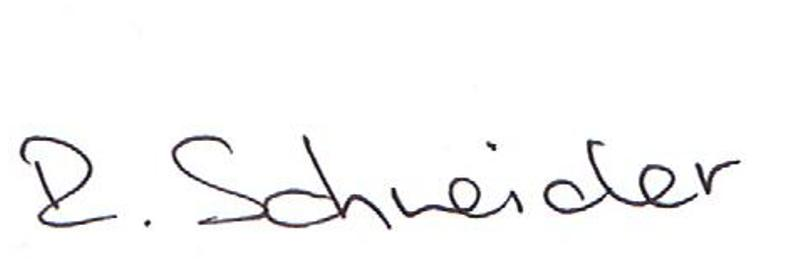 R. Schneider